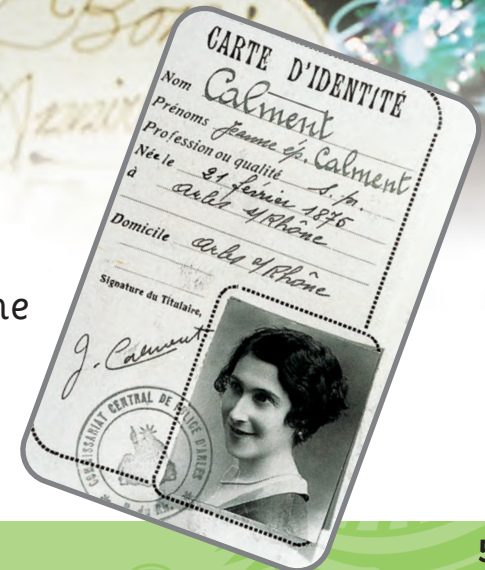 CARTE D'IDENTITÉ
Nom Calment
Prénoms Jeanne ép. Calment
Profession ou qualité s. pr.
Née le 21 février 1875
à Arles s/Rhône
Domicile Arles s/Rhône
Signature du Titulaire,
J. Calment
COMMISSARIAT CENTRAL DE POLICE D'ARLES
ne
5